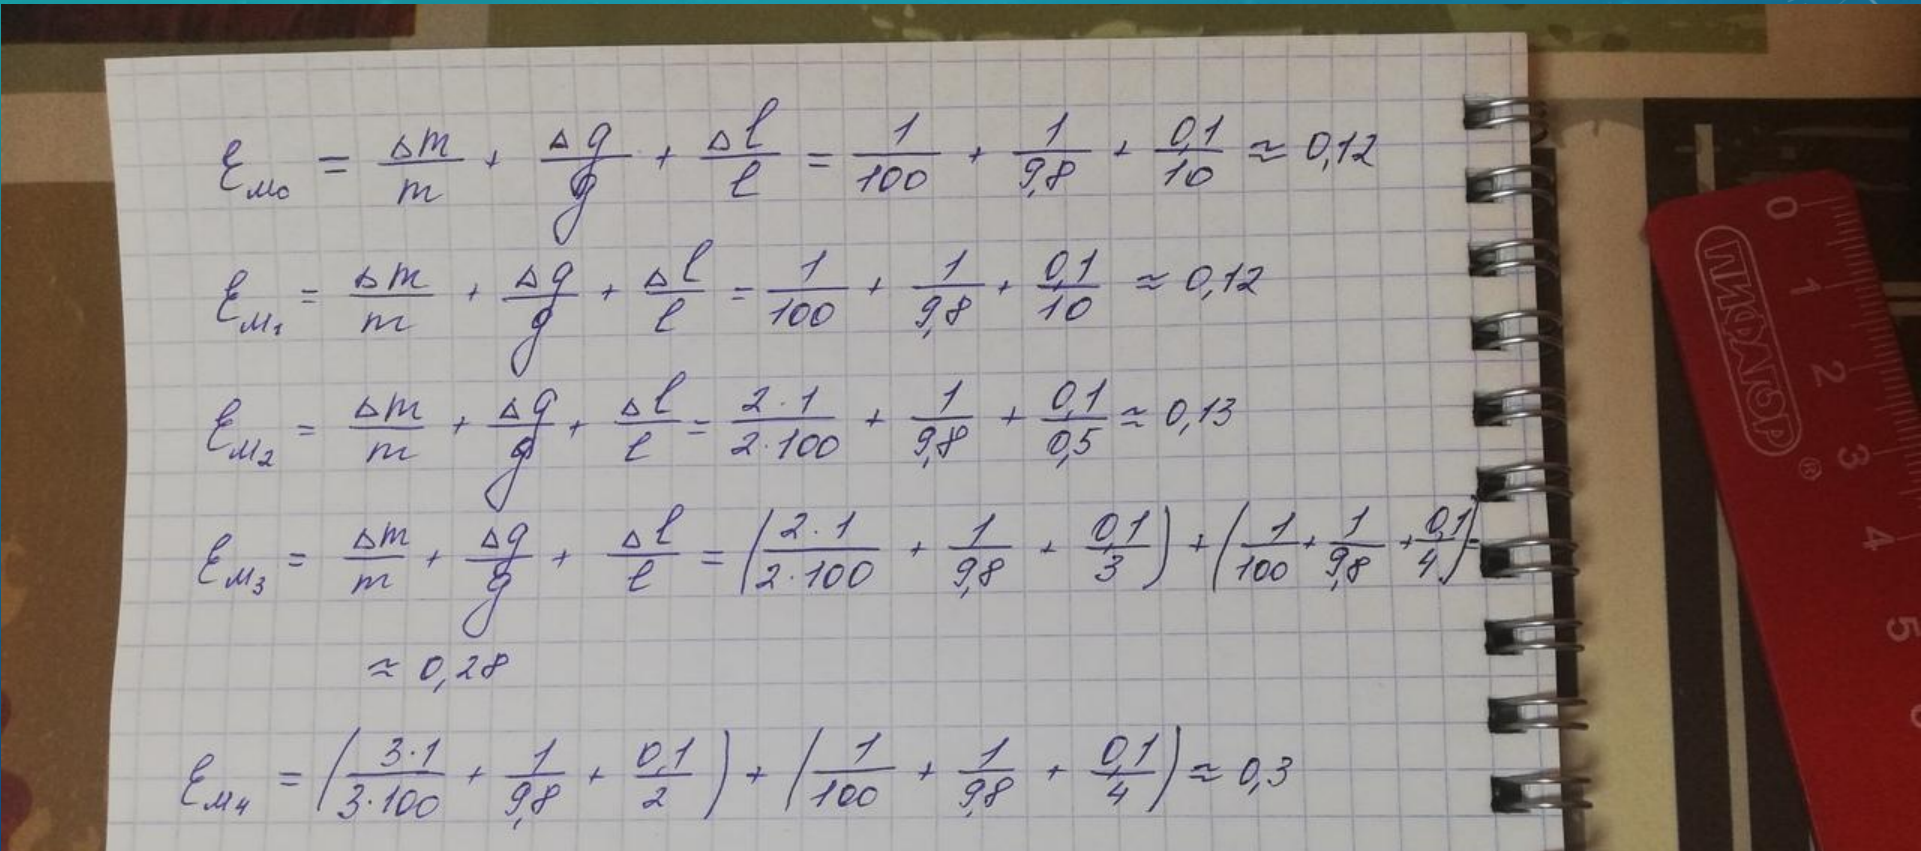 ε_M₀ = Δm/m + Δg/g + Δl/l = 1/100 + 1/9,8 + 0,1/10 ≈ 0,12
ε_M₁ = Δm/m + Δg/g + Δl/l = 1/100 + 1/9,8 + 0,1/10 ≈ 0,12
ε_M₂ = Δm/m + Δg/g + Δl/l = 2·1/2·100 + 1/9,8 + 0,1/0,5 ≈ 0,13
ε_M₃ = Δm/m + Δg/g + Δl/l = (2·1/2·100 + 1/9,8 + 0,1/3) + (1/100 + 1/9,8 + 0,1/4) =
≈ 0,28
ε_M₄ = (3·1/3·100 + 1/9,8 + 0,1/2) + (1/100 + 1/9,8 + 0,1/4) ≈ 0,3
ПИФАГОР ®
0 1 2 3 4 5